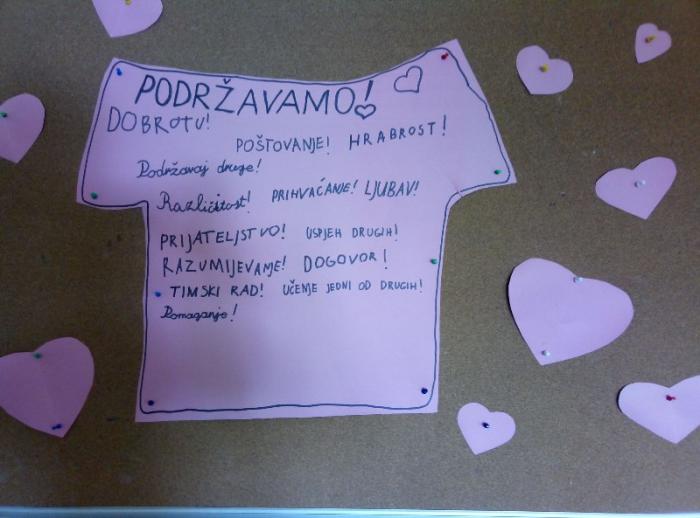 PODRŽAVAMO!
DOBROTU!
POŠTOVANJE! HRABROST!
Podržavaj druge!
Različitost! PRIHVAĆANJE! LJUBAV!
PRIJATELJSTVO! USPJEH DRUGIH!
RAZUMIJEVANJE! DOGOVOR!
TIMSKI RAD! UČENJE JEDNI OD DRUGIH!
Pomaganje!